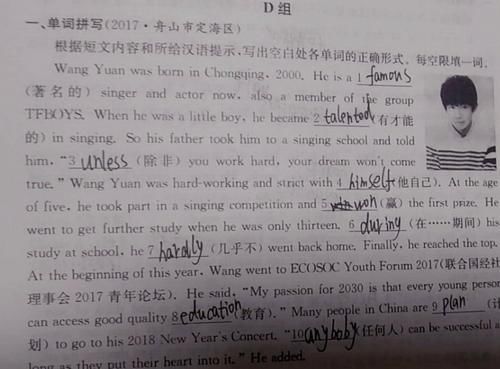 D 组
一、单词拼写(2017·舟山市定海区)
根据短文内容和所给汉语提示,写出空白处各单词的正确形式。每空限填一词.
Wang Yuan was born in Chongqing, 2000. He is a 1 famous
(著名的) singer and actor now, also a member of the group
TFBOYS. When he was a little boy, he became 2 talented (有才能
的) in singing. So his father took him to a singing school and told
him, “3 unless (除非) you work hard, your dream won't come
true.” Wang Yuan was hard-working and strict with 4 himself (他自己). At the age
of five, he took part in a singing competition and 5 won (赢) the first prize. He
went to get further study when he was only thirteen. 6 during (在……期间) his
study at school, he 7 hardly (几乎不) went back home. Finally, he reached the top.
At the beginning of this year, Wang went to ECOSOC Youth Forum 2017(联合国经社
理事会 2017 青年论坛). He said, “My passion for 2030 is that every young person
can access good quality 8 education (教育).” Many people in China are 9 plan (计
划) to go to his 2018 New Year's Concert. “10 anybody (任何人) can be successful a
long as they put their heart into it.” He added.